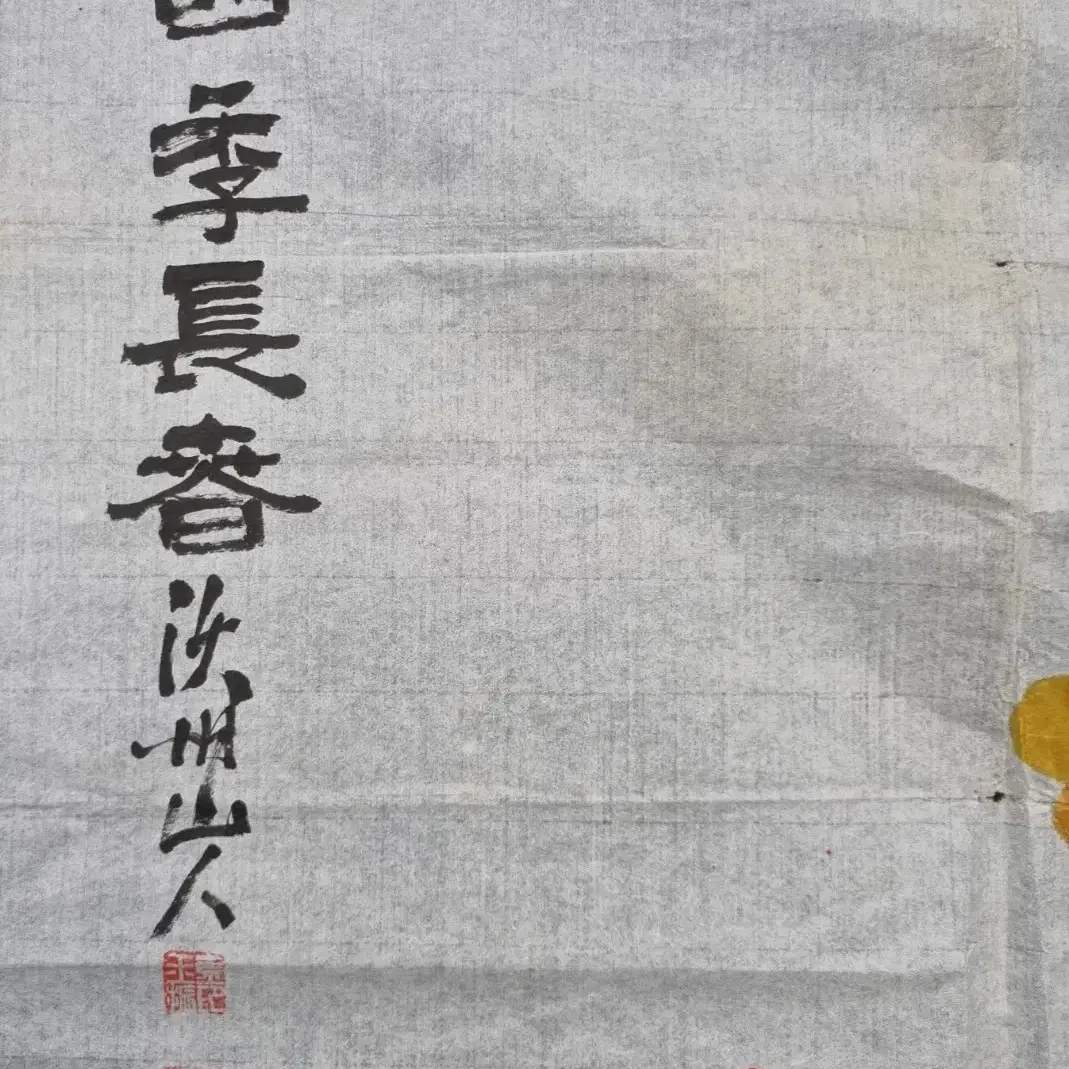 四季長春
沃州山人